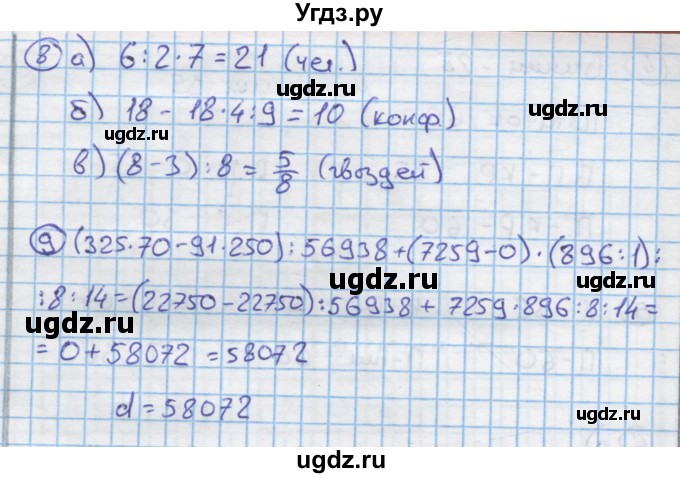 Угдз.ру
8 а) 6:2·7=21 (чел.)
ugdz.ru
б) 18-18·4:9=10 (конф.)
ugdz.ru
ugdz.ru
в) (8-3):8=5/8 (гвоздей)
ugdz.ru
9 (325·70-91·250):56938+(7259-0)·(896:1):
ugdz.ru
:8:14=(22750-22750):56938+7259·896:8:14=
ugdz.ru
=0+58072=58072
ugdz.ru
d=58072
ugdz.ru
ugdz.ru